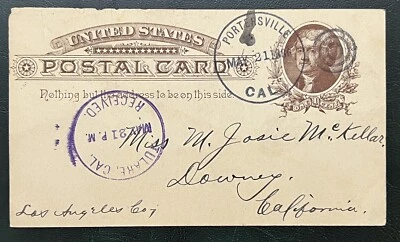 UNITED STATES
POSTAL CARD
Nothing but the address to be on this side.
PORTERSVILLE
MAY 21
CAL.
TULARE, CAL.
MAY 21 P.M.
RECEIVED.
Miss M. Josie McKellar.
Downey
Los Angeles Co,
California.